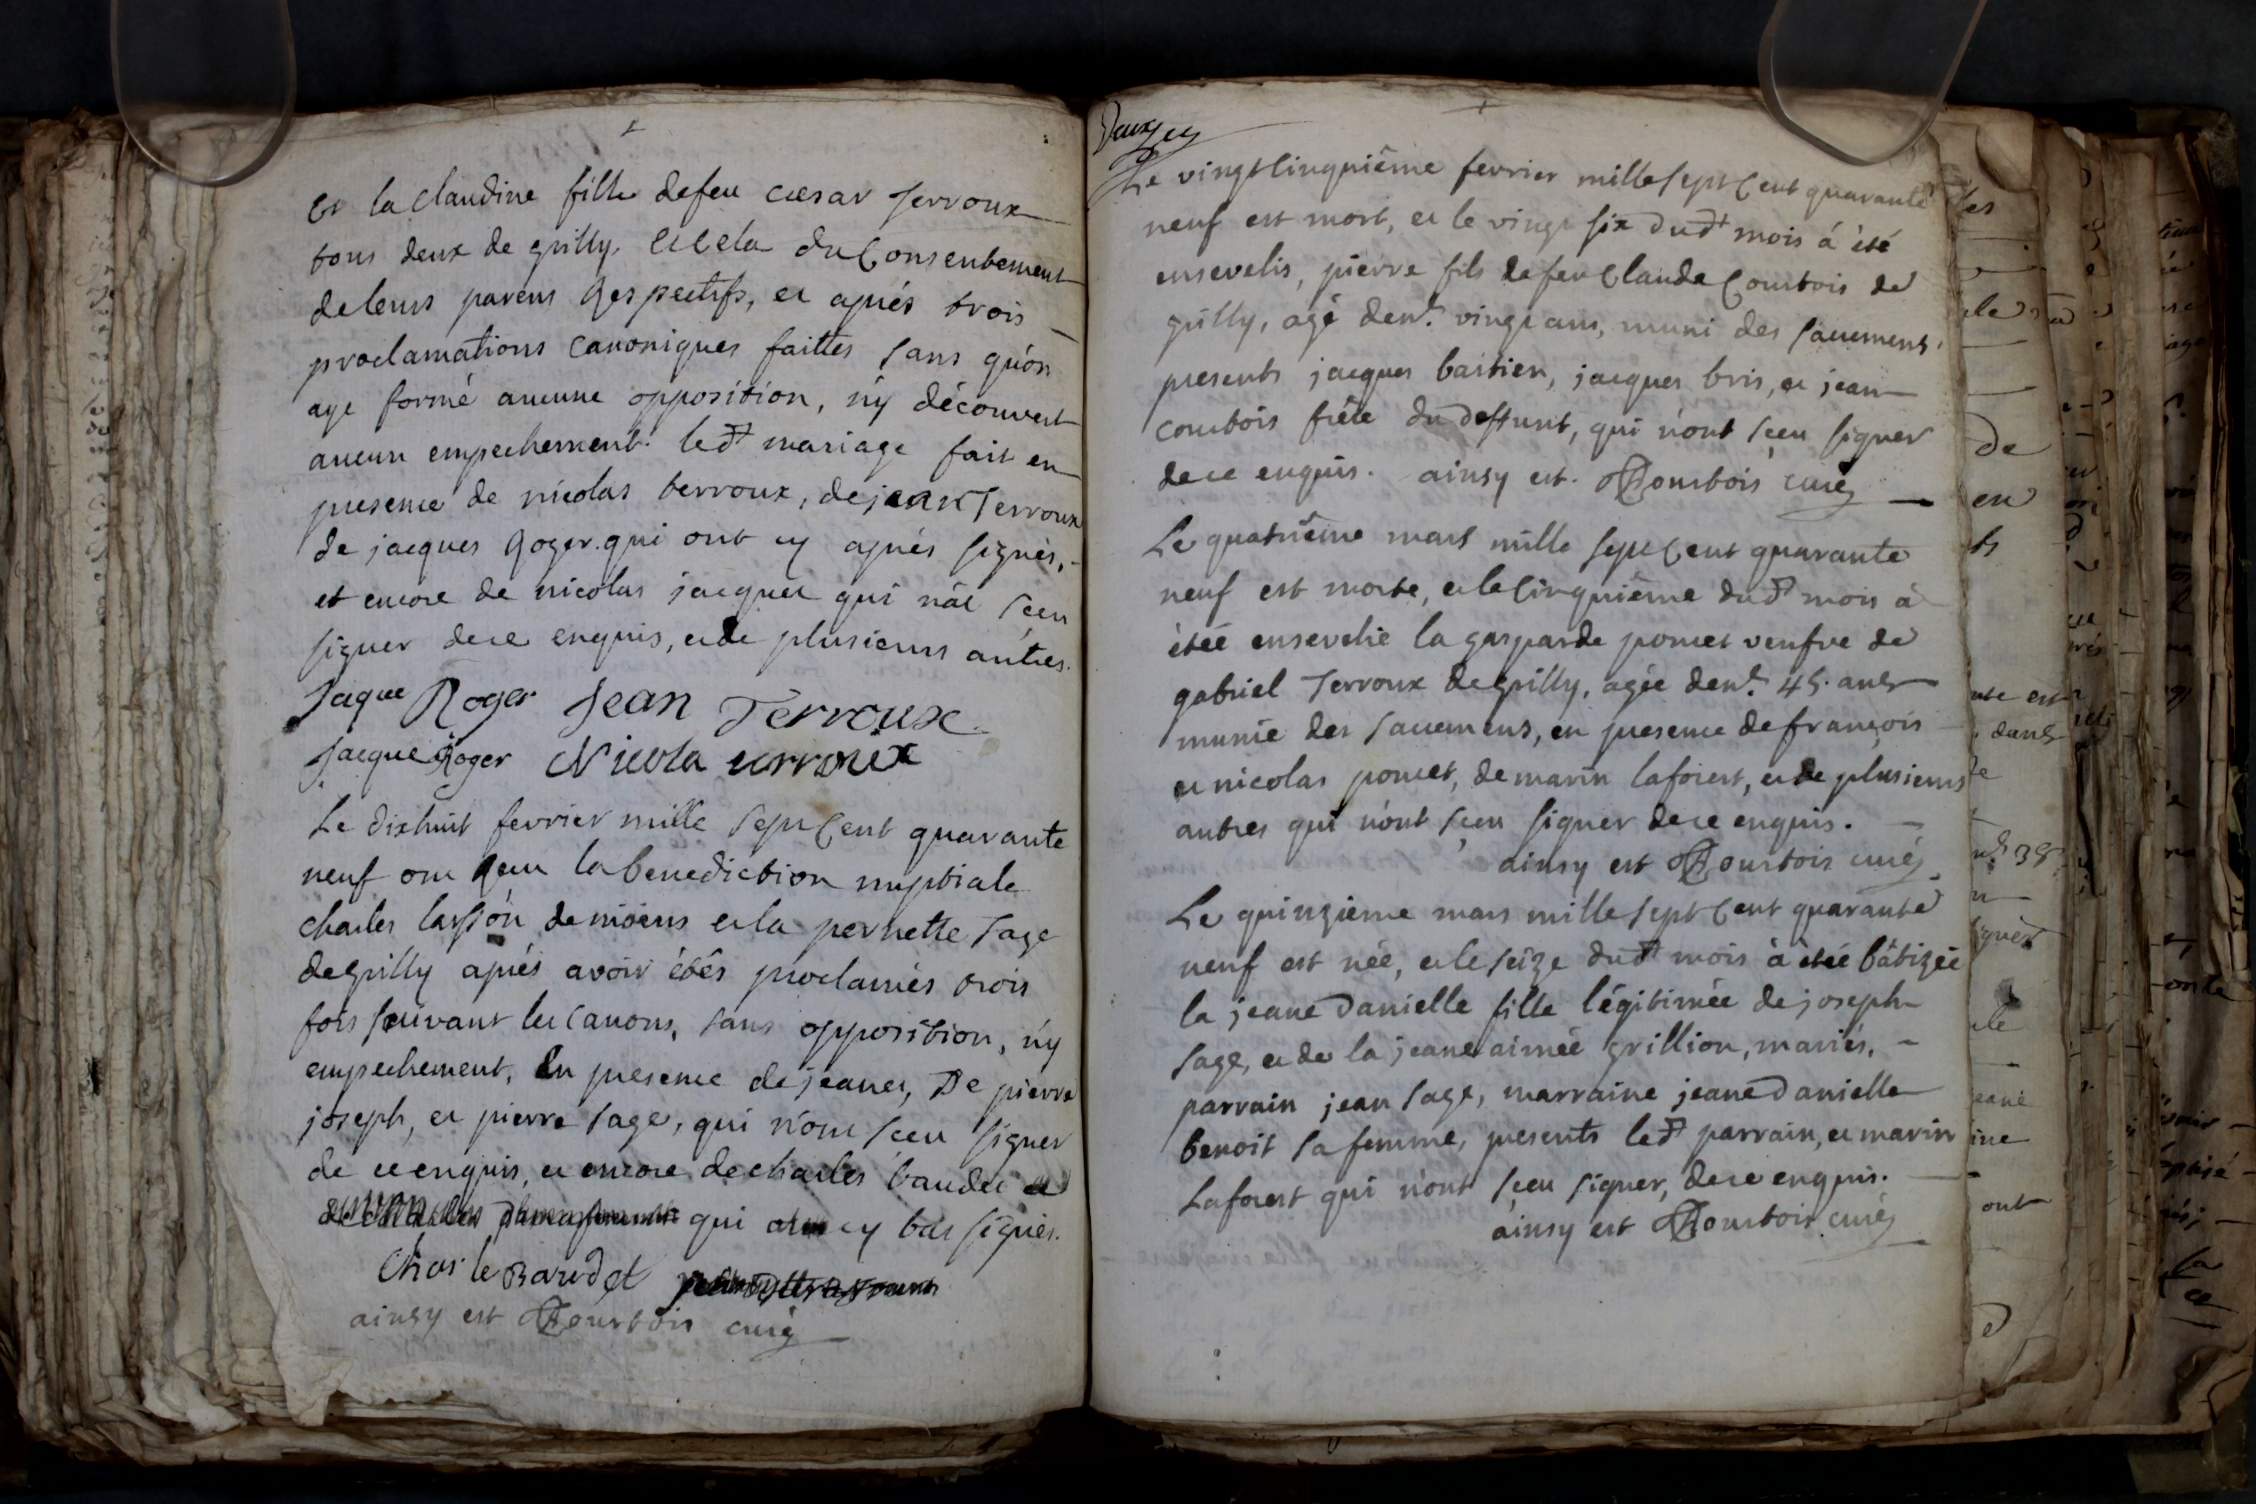 Et la claudine fille defeu cæsar Terroux
tous deux de grilly. et cela du Consentement
deleurs parens Respectifs, et aprés trois
proclamations canoniques faittes sans qu'on
aye formé aucune opposition, n'y découvert
aucun empechement. led.t mariage fait en
presence de nicolas terroux, de jean Terroux
de jacques Roger. qui ont cy aprés signés,
et encore de nicolas jacquet qui n'at sceu
signer dece enquis, et de plusieurs autres.
Jaque Roger Jean Terroux
jacque Roger Nicola terroux
Le dixhuit fevrier mille sept Cent quarante
neuf ont Receu la benediction nuptiale
charles de moëns et la pernette sage
degrilly aprés avoir étés proclamés trois
fois suivant les canons, sans opposition, n'y
empechement, En presence de jeanes, De pierre
joseph, et pierre sage, qui n'ont sceu signer
de ce enquis, et encore decharles baudet
qui cy bas signés.
Charle Baudet
ainsy est Courtois curé
Le vingt cinquiéme fevrier mille sept Cent quarante
neuf est mort, et le vingt six dud.t mois á été
ensevelis, pierre fils de feu Claude Courtois de
grilly, agé denv. vingt ans, muni des sacremens.
presents jacques bastien, jacques bris, et jean
courtois frére du deffunt, qui n'ont sceu signer
dece enquis. ainsy est. Courtois curé
Le quatriéme mars mille sept Cent quarante
neuf est morte, et le Cinquiéme dud.t mois á
étéé ensevelie la gasparde poncet veufve de
gabriel Terroux degrilly, agée denv. 45. ans
munie des sacremens, en presence de françois
et nicolas poncet, de marin laforest, et de plusieurs
autres qui n'ont sceu signer dece enquis.
ainsy est Courtois curé
Le quinzieme mars mille sept Cent quarante
neuf est née, et le seize dud.t mois à étéé bâtizée
la jeane Danielle fille légitimée de joseph
sage, et de la jeane aimée grillion, mariés.
parrain jean sage, marraine jeane Danielle
benoit sa femme, presents led.t parrain, et marin
Laforest qui n'ont sceu signer, dece enquis.
ainsy est Courtois curé